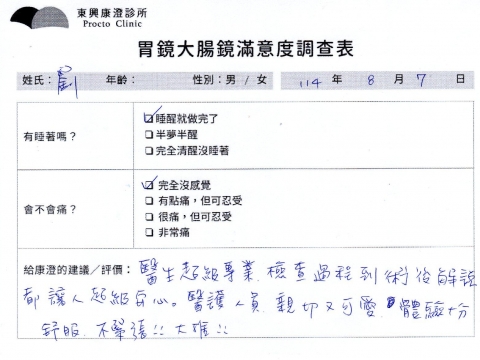 東興康澄診所
Procto Clinic
胃鏡大腸鏡滿意度調查表
姓氏：劉 年齡： 性別：男 / 女 114 年 8 月 7 日
有睡著嗎？
☑ 睡醒就做完了
☐ 半夢半醒
☐ 完全清醒沒睡著
會不會痛？
☑ 完全沒感覺
☐ 有點痛，但可忍受
☐ 很痛，但可忍受
☐ 非常痛
給康澄的建議／評價：醫生超級專業，檢查過程到術後解說
都讓人超級安心。醫護人員 親切又可愛，體驗十分
舒服、不緊張!! 大推!!